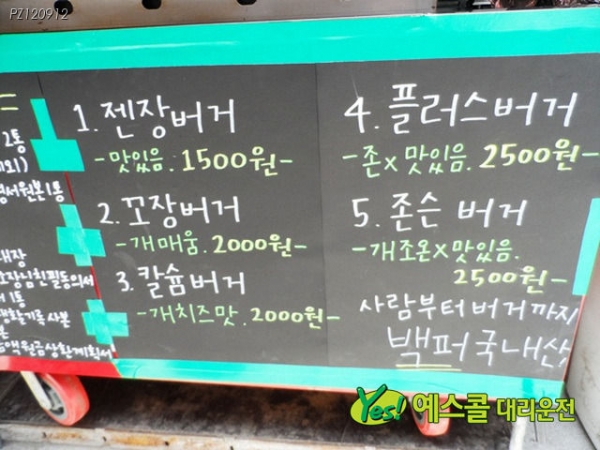 PZ120912
1. 젠장버거
-맛있음. 1500원-
2. 꼬장버거
-개매움. 2000원-
3. 칼슘버거
-개치즈맛. 2000원-
4. 플러스버거
-존x 맛있음. 2500원-
5. 존슨 버거
-개조온x맛있음.
2500원-
사람부터 버거까지
백퍼국내산
2통
1통
사본
Yes! 예스콜 대리운전